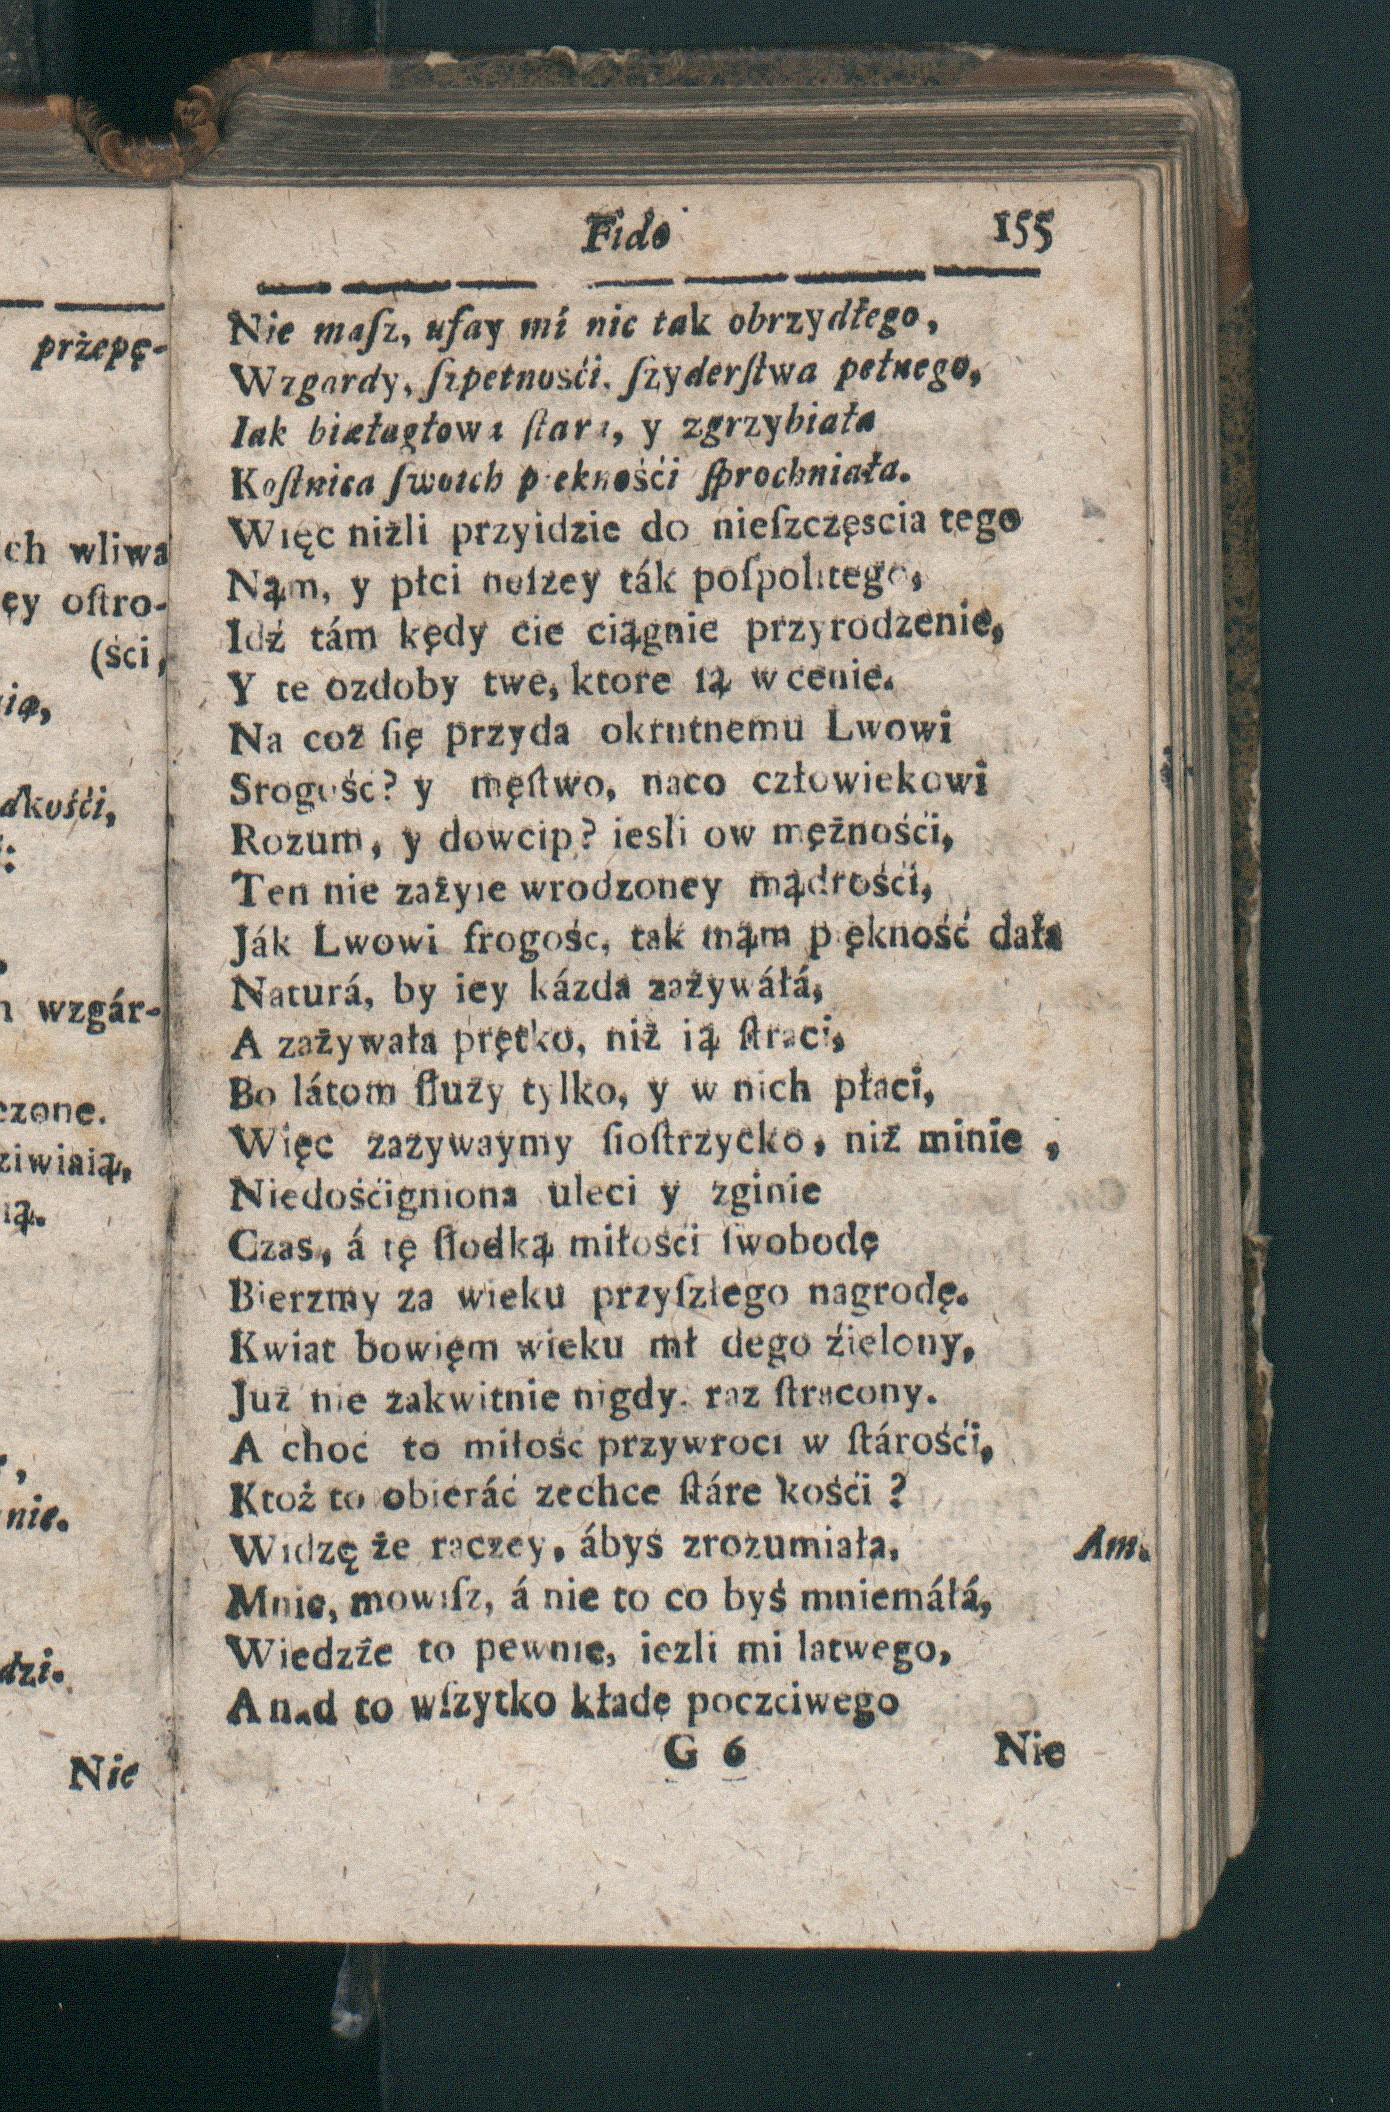 Fido 155
Nie maſz, ufay mi nic tak obrzydłego,
Wzgardy, ſzpetnośći, ſzyderſtwa pełnego,
Iak białagłowa ſtara, y zgrzybiała
Koſtnica ſwoich piekнośći ſprochniała.
Więc niżli przyidzie do nieſzczęscia tego
Nąm, y płci naſzey ták poſpolitego,
Idź tám kędy cie ciągnie przyrodzenie,
Y te ozdoby twe, ktore ſą w cenie.
Na coż ſię przyda okrutnemu Lwowi
Srogość? y męſtwo, naco człowiekowi
Rozum, y dowcip? iesli ow mężnośći,
Ten nie zażyie wrodzoney mądrośći,
Ják Lwowi ſrogośc, tak mąm piękność dała
Naturá, by iey kázda zażywáłá,
A zażywała prętko, niż ią ſtraci,
Bo látom ſłuży tylko, y w nich płaci,
Więc zażywaymy ſioſtrzycko, niż minie,
Niedośćigniona uleci y zginie
Czas, á tę ſłodką miłośći ſwobodę
Bierzmy za wieku przyſzłego nagrodę.
Kwiat bowięm wieku mł dego źielony,
Już nie zakwitnie nigdy, raz ſtracony.
A choć to miłość przywroci w ſtárośći,
Ktoż to obieráć zechce ſtáre kośći?
Widzę że raczey, ábyś zrozumiała, Am.
Mnie, mowiſz, á nie to co byś mniemáłá,
Wiedzże to pewnie, iezli mi latwego,
A nad to wſzytko kładę poczciwego
G 6 Nie
przepę-
ich wliwa
ęy oſtro-
(śći,
ią,
dkośći,
wzgár-
czone.
ziwiaią,
ią.
nie.
dzi.
Nie